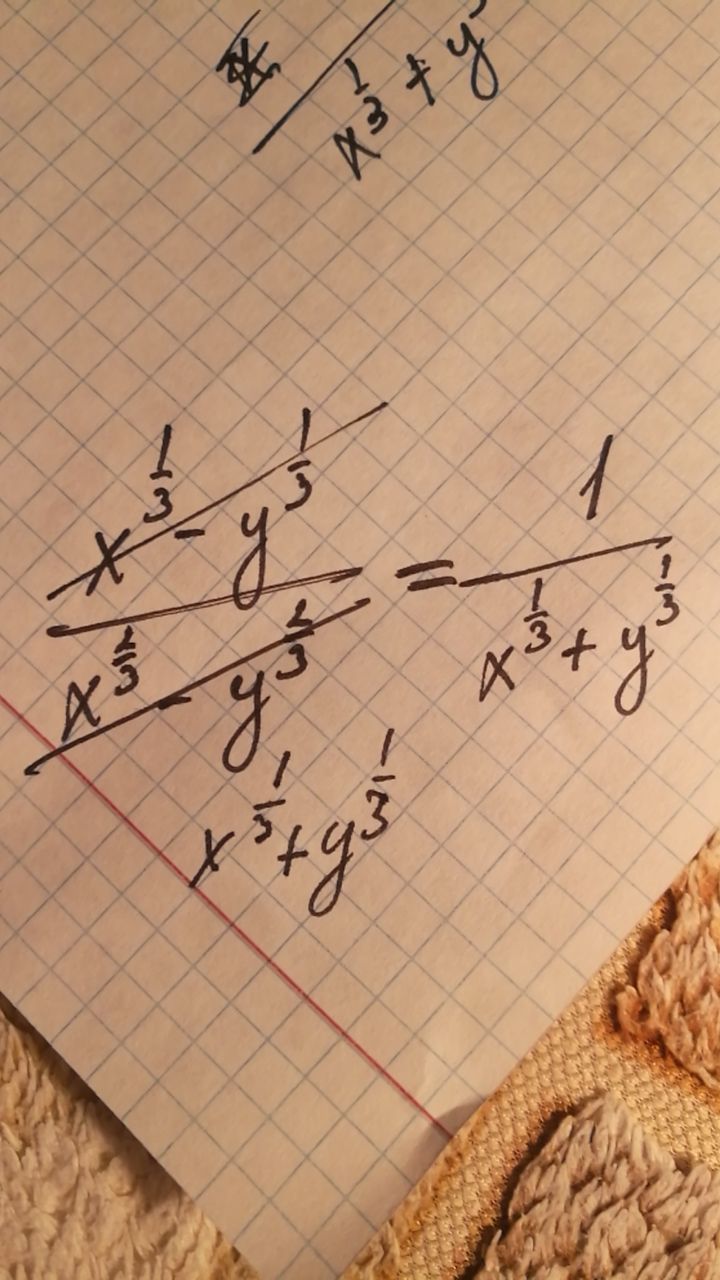 x^(1/3) + y
x^(1/3) - y^(1/3)
x^(2/3) - y^(2/3)
x^(1/3) + y^(1/3)
= 1 / (x^(1/3) + y^(1/3))